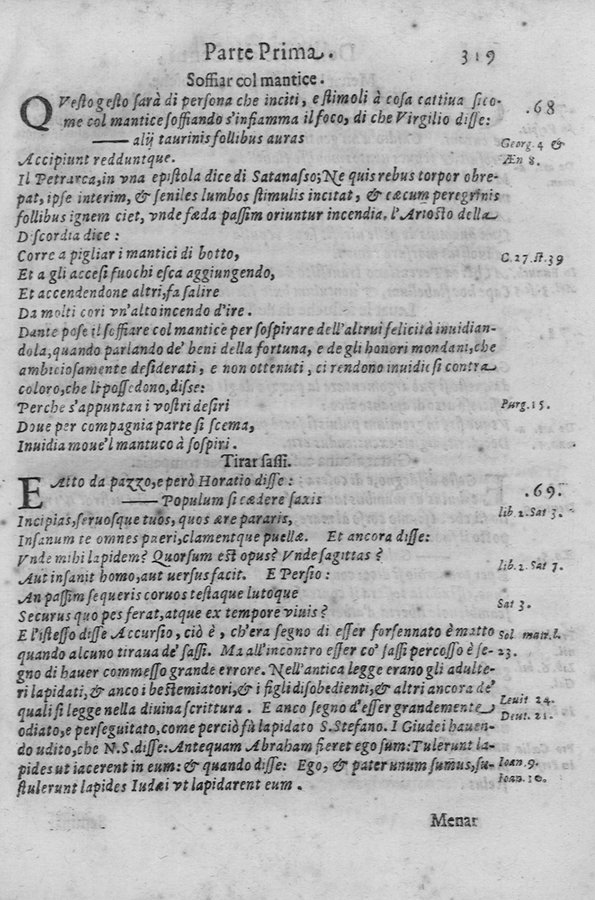 Parte Prima. 319
Soffiar col mantice.
QVesto gesto sarà di persona che inciti, e stimoli à cosa cattiua sico- .68
me col mantice soffiando s'infiamma il foco, di che Virgilio disse:
—— alij taurinis follibus auras Georg. 4 &
Accipiunt redduntque. Æn 8.
Il Petrarca, in vna epistola dice di Satanasso; Ne quis rebus torpor obre-
pat, ipse interim, & seniles lumbos stimulis incitat, & cæcum peregrinis
follibus ignem ciet, vnde fæda passim oriuntur incendia. l'Ariosto della
Discordia dice:
Corre a pigliar i mantici di botto, C. 27. st. 39
Et a gli accesi fuochi esca aggiungendo,
Et accendendone altri, fa salire
Da molti cori vn'alto incendo d'ire.
Dante pose il soffiare col mantice per sospirare dell'altrui felicità inuidian-
dola, quando parlando de' beni della fortuna, e de gli honori mondani, che
ambitiosamente desiderati, e non ottenuti, ci rendono inuidiosi contra
coloro, che li possedono, disse:
Perche s'appuntan i vostri desiri Purg. 15.
Doue per compagnia parte si scema,
Inuidia moue'l mantuco à sospiri.
Tirar sassi.
EAtto da pazzo, e però Horatio disse: .69.
—— Populum si cædere saxis lib. 2. Sat 3.
Incipias, seruosque tuos, quos ære pararis,
Insanum te omnes pueri, clamentque puellæ. Et ancora disse:
Vnde mihi lapidem? Quorsum est opus? Vnde sagittas?
Aut insanit homo, aut uersus facit. E Persio: lib. 2. Sat 7.
An passim sequeris coruos testaque lutoque
Securus quo pes ferat, atque ex tempore viuis? Sat 3.
E l'istesso disse Accursio, ciò è, ch'era segno di esser forsennato è matto Sol. matr. l.
quando alcuno tiraua de' sassi. Ma all'incontro esser co' sassi percosso è se- 23.
gno di hauer commesso grande errore. Nell'antica legge erano gli adulte-
ri lapidati, & anco i bestemiatori, & i figli disobedienti, & altri ancora de'
quali si legge nella diuina scrittura. E anco segno d'esser grandemente Leuit 24.
odiato, e perseguitato, come perciò fù lapidato S. Stefano. I Giudei hauen- Deut. 21.
do udito, che N. S. disse: Antequam Abraham fieret ego sum: Tulerunt la-
pides ut iacerent in eum: & quando disse: Ego, & pater unum sumus, su- Ioan. 9.
stulerunt lapides Iudæi vt lapidarent eum. Ioan. 10.
Menar